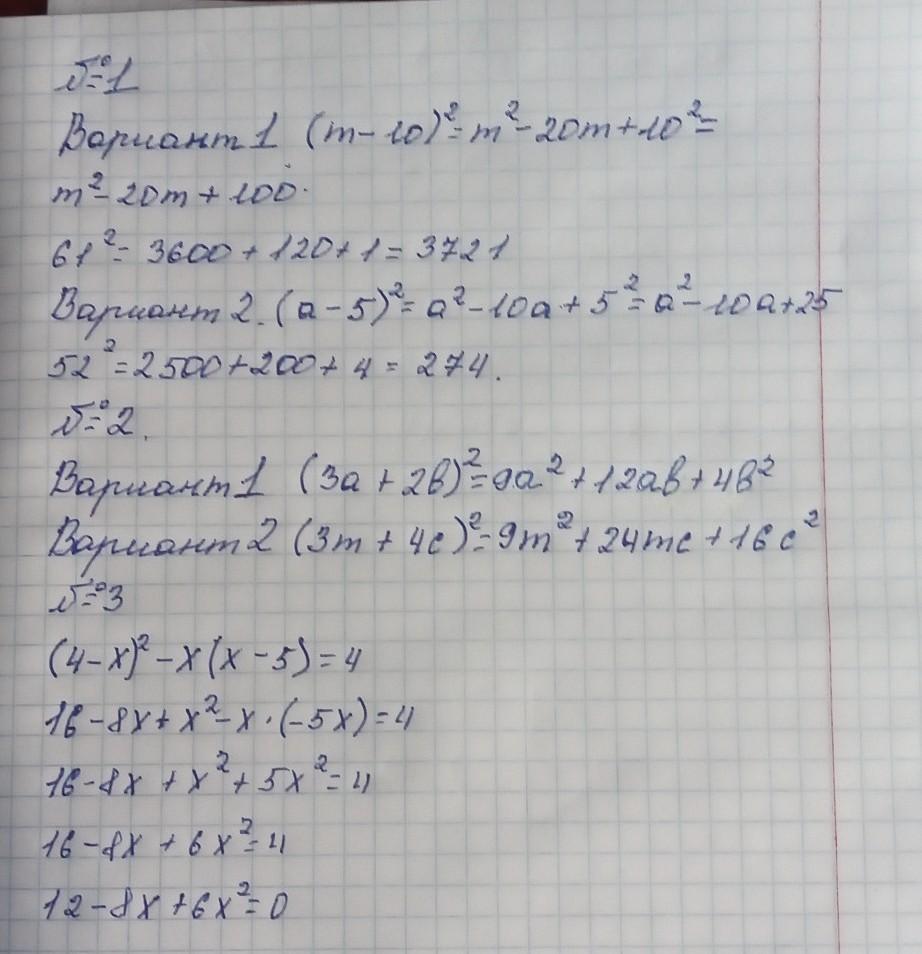 №1
Вариант 1 (m-10)²=m²-20m+10²=
m²-20m+100.
61²= 3600+120+1=3721
Вариант 2. (a-5)²=a²-10a+5²=a²-10a+25
52²=2500+200+4=274.
№2.
Вариант 1 (3a+2b)²=9a²+12ab+4b²
Вариант 2 (3m+4c)²=9m²+24mc+16c²
№3
(4-x)²-x(x-5)=4
16-8x+x²-x·(-5x)=4
16-8x+x²+5x²=4
16-8x+6x²=4
12-8x+6x²=0